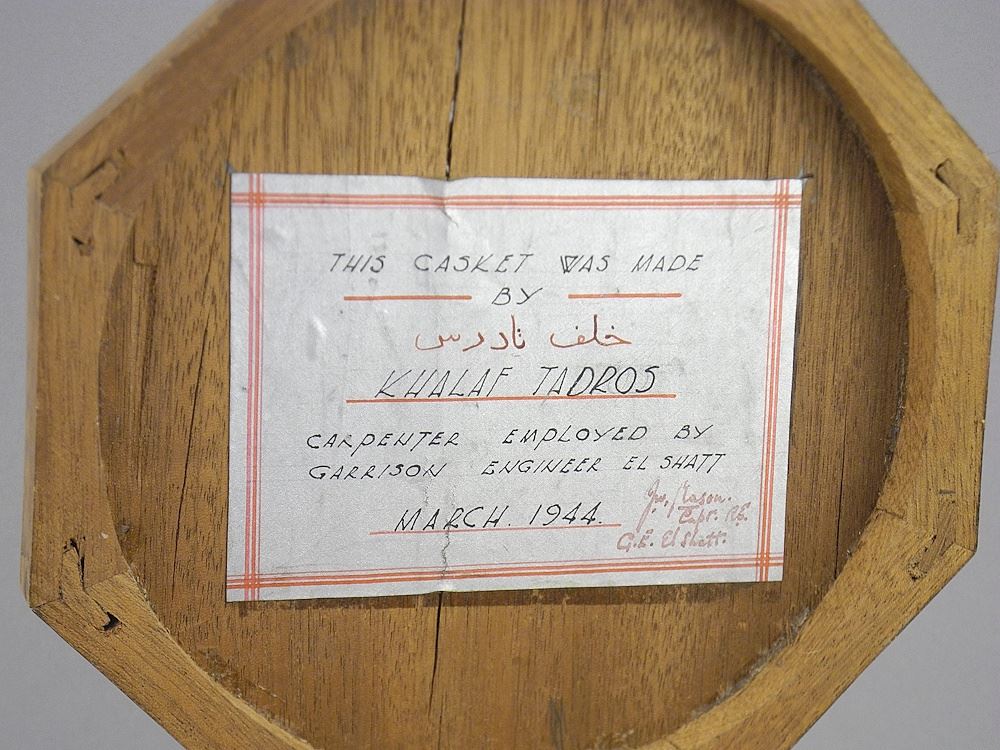 THIS CASKET WAS MADE
BY
خلف تادرس
KHALAF TADROS
CARPENTER EMPLOYED BY
GARRISON ENGINEER EL SHATT
MARCH. 1944.
Mason.
Capt. R.E.
G.E. El Shatt.